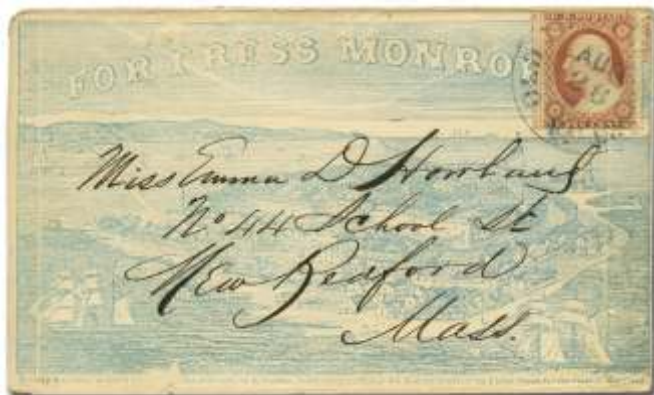 FORTRESS MONROE
OLD
AUG
28
Miss Emma D Howland
No 44 School St
New Bedford
Mass.